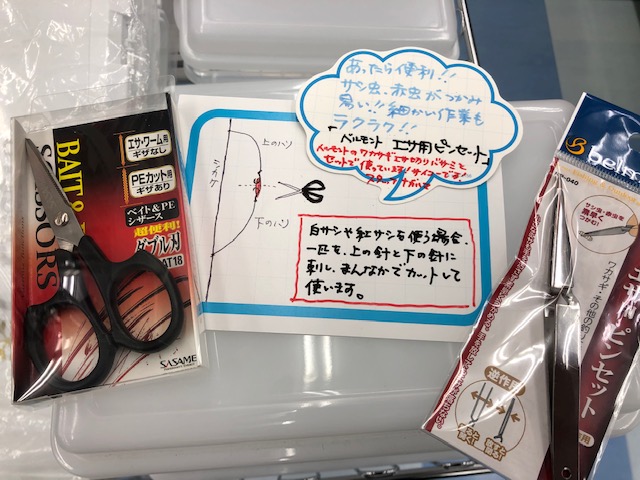 あったら便利!!
サシ虫、赤虫がつかみ
易い!! 細かい作業も
ラクラク!!
「ベルモント エサ用ピンセット」
ベルモントのワカサギエサ切りバサミと
セットで使っています!サイコーです!
上のハリ
下のハリ
白サシや紅サシを使う場合、
一匹を、上の針と下の針に
刺し、まんなかでカットして
使います。
エサ・ワーム用
ギザなし
PEカット用
ギザあり
BAIT &
SCISSORS
ベイト&PE
シザース
超便利!
ダブル刃
AT18
SASAME
belm
-040
サシ虫・赤虫を
つかむ!
ワカサギ・その他の釣り
ピンセット
逆作用